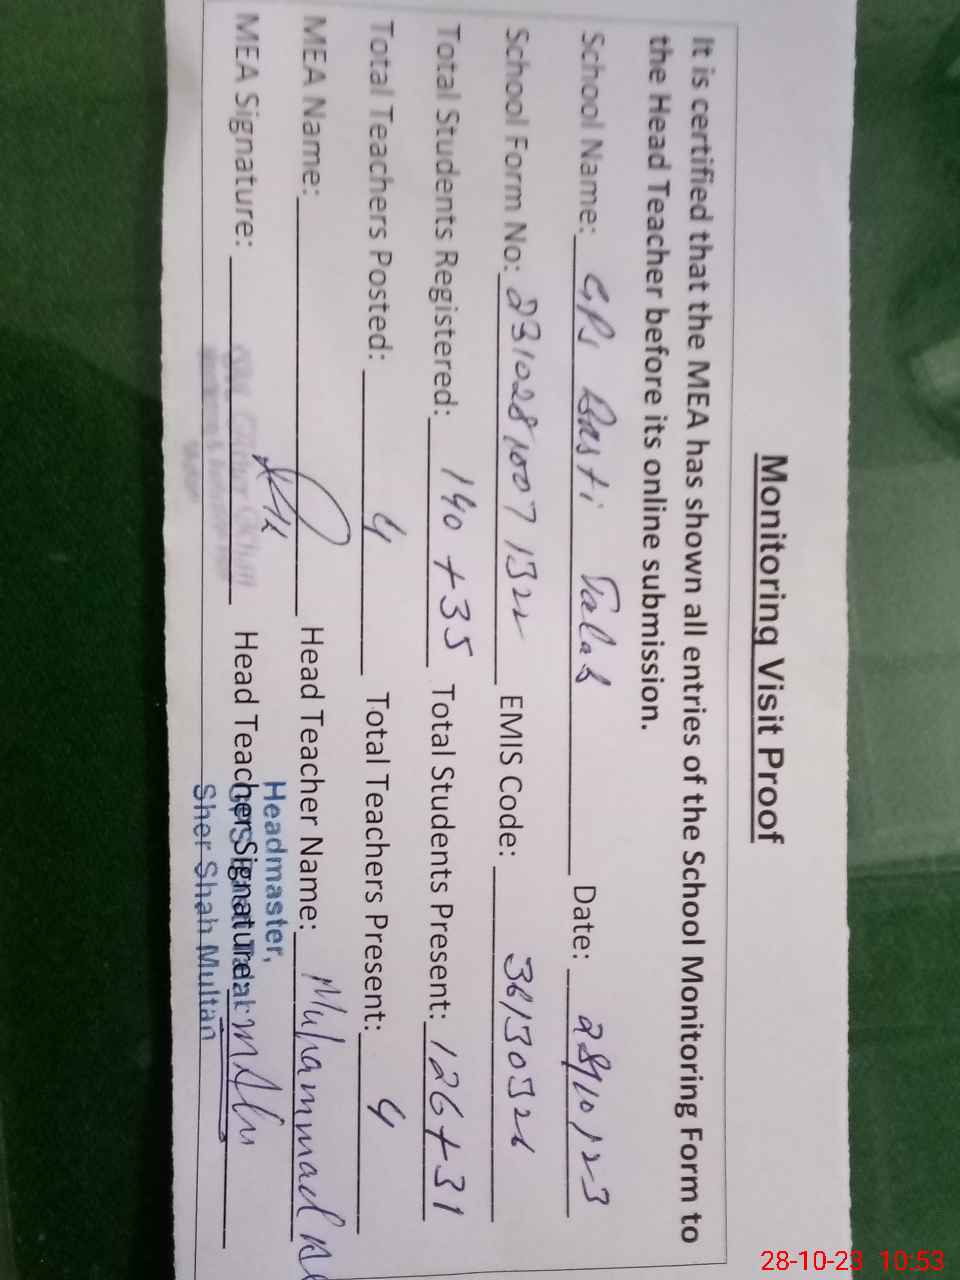 Monitoring Visit Proof
It is certified that the MEA has shown all entries of the School Monitoring Form to
the Head Teacher before its online submission.
School Name: GPS Basti Talab Date: 28/10/23
School Form No: 2310281007 1322 EMIS Code: 36130326
Total Students Registered: 140 + 35 Total Students Present: 126 + 31
Total Teachers Posted: 4 Total Teachers Present: 4
MEA Name: Head Teacher Name: Muhammad
MEA Signature: Head Teacher Signature
Headmaster,
Sher Shah Multan
28-10-23 10:53